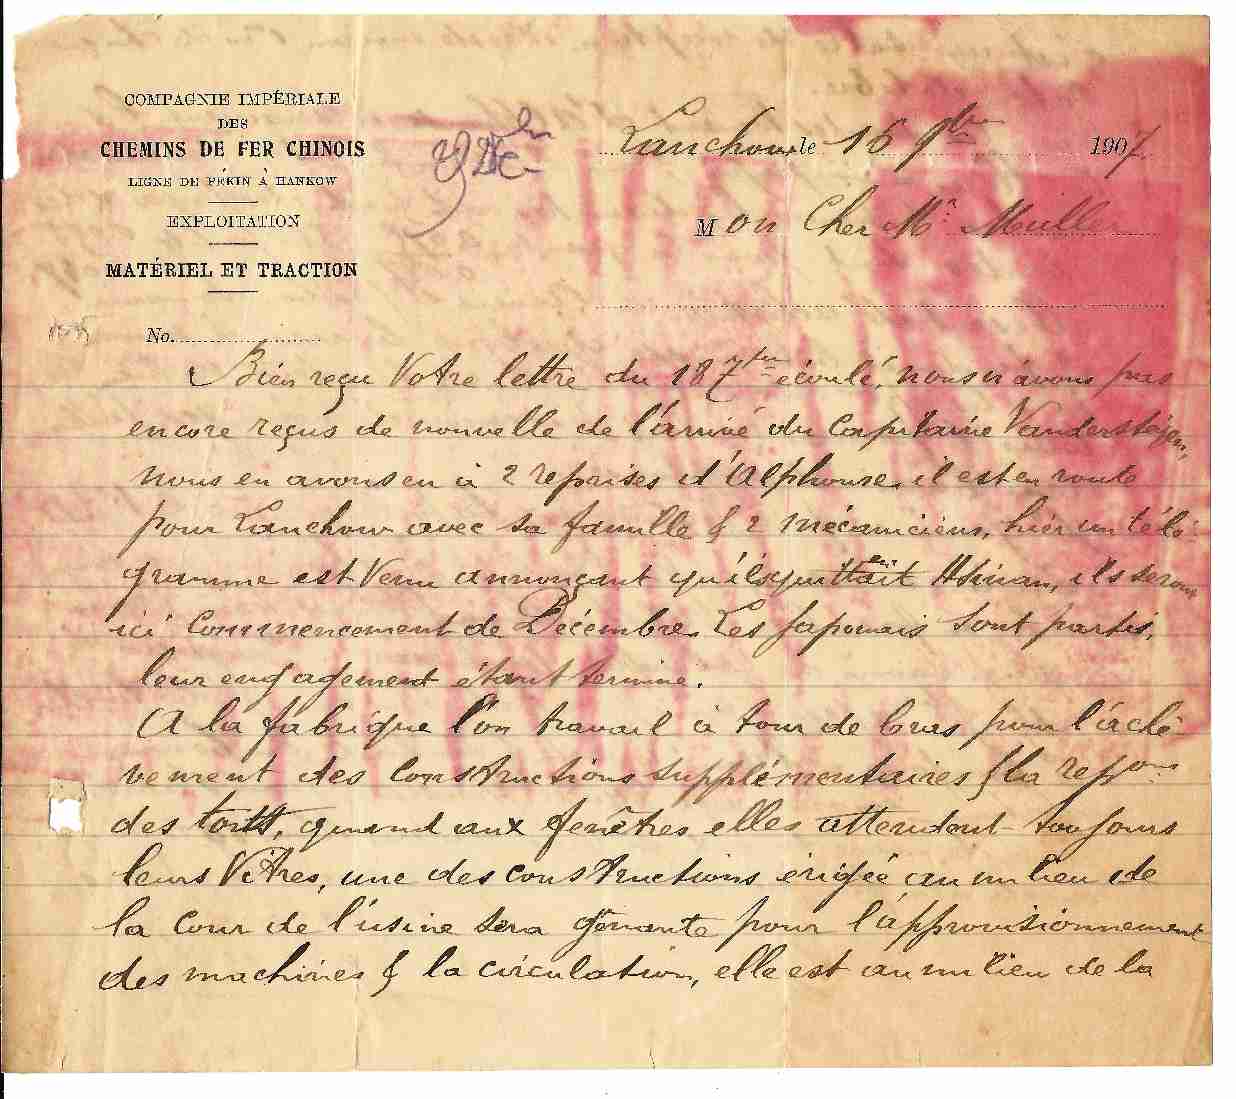 COMPAGNIE IMPÉRIALE
DES
CHEMINS DE FER CHINOIS
LIGNE DE PÉKIN À HANKOW
EXPLOITATION
MATÉRIEL ET TRACTION
No.
Lanchow le 16 9bre 1907
Mon Cher Mr. Muller
Bien reçu Votre lettre du 18 7bre écoulé, nous n'avons pas
encore reçus de nouvelle de l'arrivé du Capitaine Vandersteegen,
nous en avons eu à 2 reprises d'Alphonse, il est en route
pour Lanchow avec sa famille & 2 mécaniciens, hier un télé-
gramme est venu annonçant qu'ils quittait Hsinan, ils seront
ici Commencement de Décembre. Les Japonais Sont partis,
leur engagement étant terminé.
A la fabrique l'on travail à tour de bras pour l'achè-
vement des Constructions supplémentaires & la repon
des toits, quand aux fenêtres elles attendent toujours
leurs Vitres, une des constructions érigée au milieu de
la Cour de l'usine sera gênante pour l'approvisionnement
des machines & la circulation, elle est au milieu de la